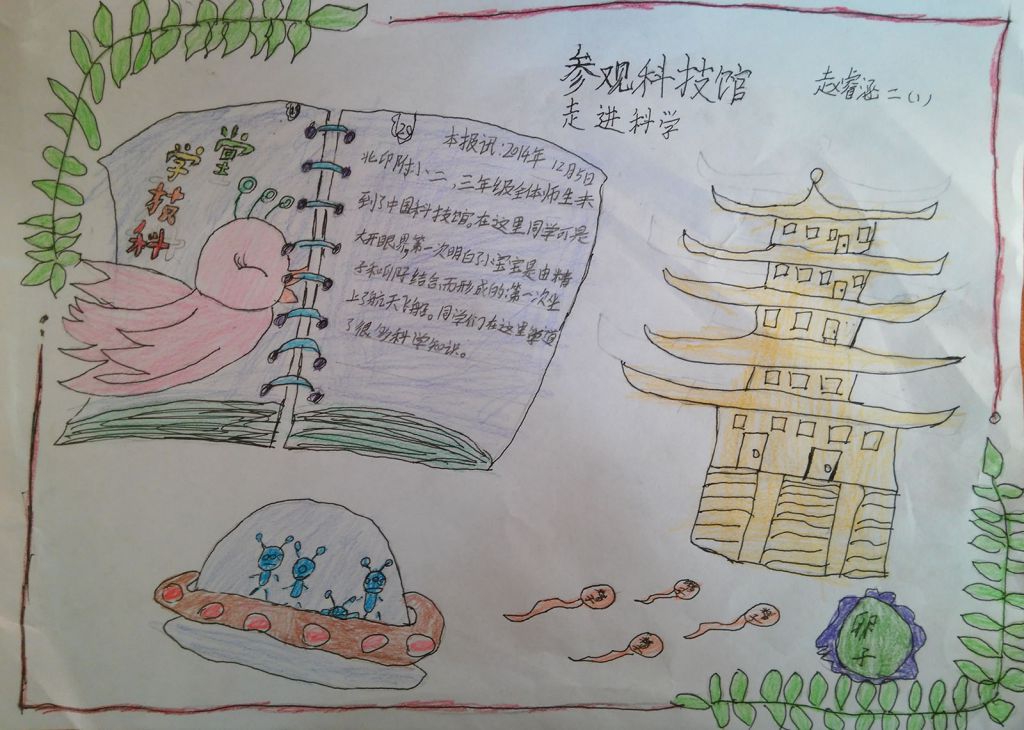 参观科技馆
走进科学
赵睿涵 二(1)
科技学堂
本报讯:2014年12月5日
北印附小二,三年级全体师生来
到了中国科技馆。在这里同学可是
大开眼界,第一次明白了小宝宝是由精
子和卵子结合而形成的;第一次坐
上了航天飞船。同学们在这里知道
了很多科学知识。
精子
精子
精子
精子
卵子